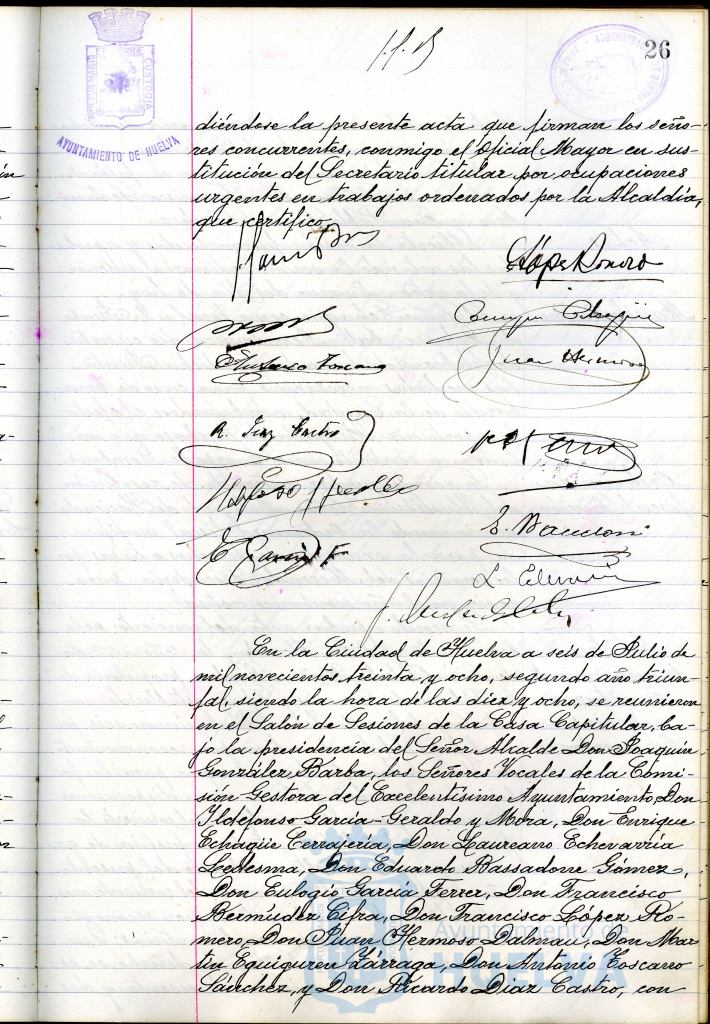 26
CUSTODIA
AYUNTAMIENTO DE HUELVA
diéndose la presente acta que firman los seño-
res concurrentes, conmigo el Oficial Mayor en sus-
titución del Secretario titular por ocupaciones
urgentes en trabajos ordenados por la Alcaldía,
que certifico.
López Romero
Juan Hermoso
R. Diaz Castro
E. García F
En la Ciudad de Huelva a seis de Julio de
mil novecientos treinta y ocho, segundo año triun-
fal, siendo la hora de las diez y ocho, se reunieron
en el Salón de Sesiones de la Casa Capitular, ba-
jo la presidencia del Señor Alcalde Don Joaquin
González Barba, los Señores Vocales de la Comi-
sión Gestora del Excelentísimo Ayuntamiento, Don
Ildefonso García-Geraldo y Mora, Don Enrique
Echagüe Cerrajería, Don Laureano Echevarría
Ledesma, Don Eduardo Bassadone Gómez,
Don Eulogio García Ferrer, Don Francisco
Bermúdez Cifra, Don Francisco López Ro-
mero, Don Juan Hermoso Dalmau, Don Mar-
tín Eguiguren Zárraga, Don Antonio Toscano
Sánchez, y Don Ricardo Diaz Castro, con
Ayuntamiento de
HUELVA